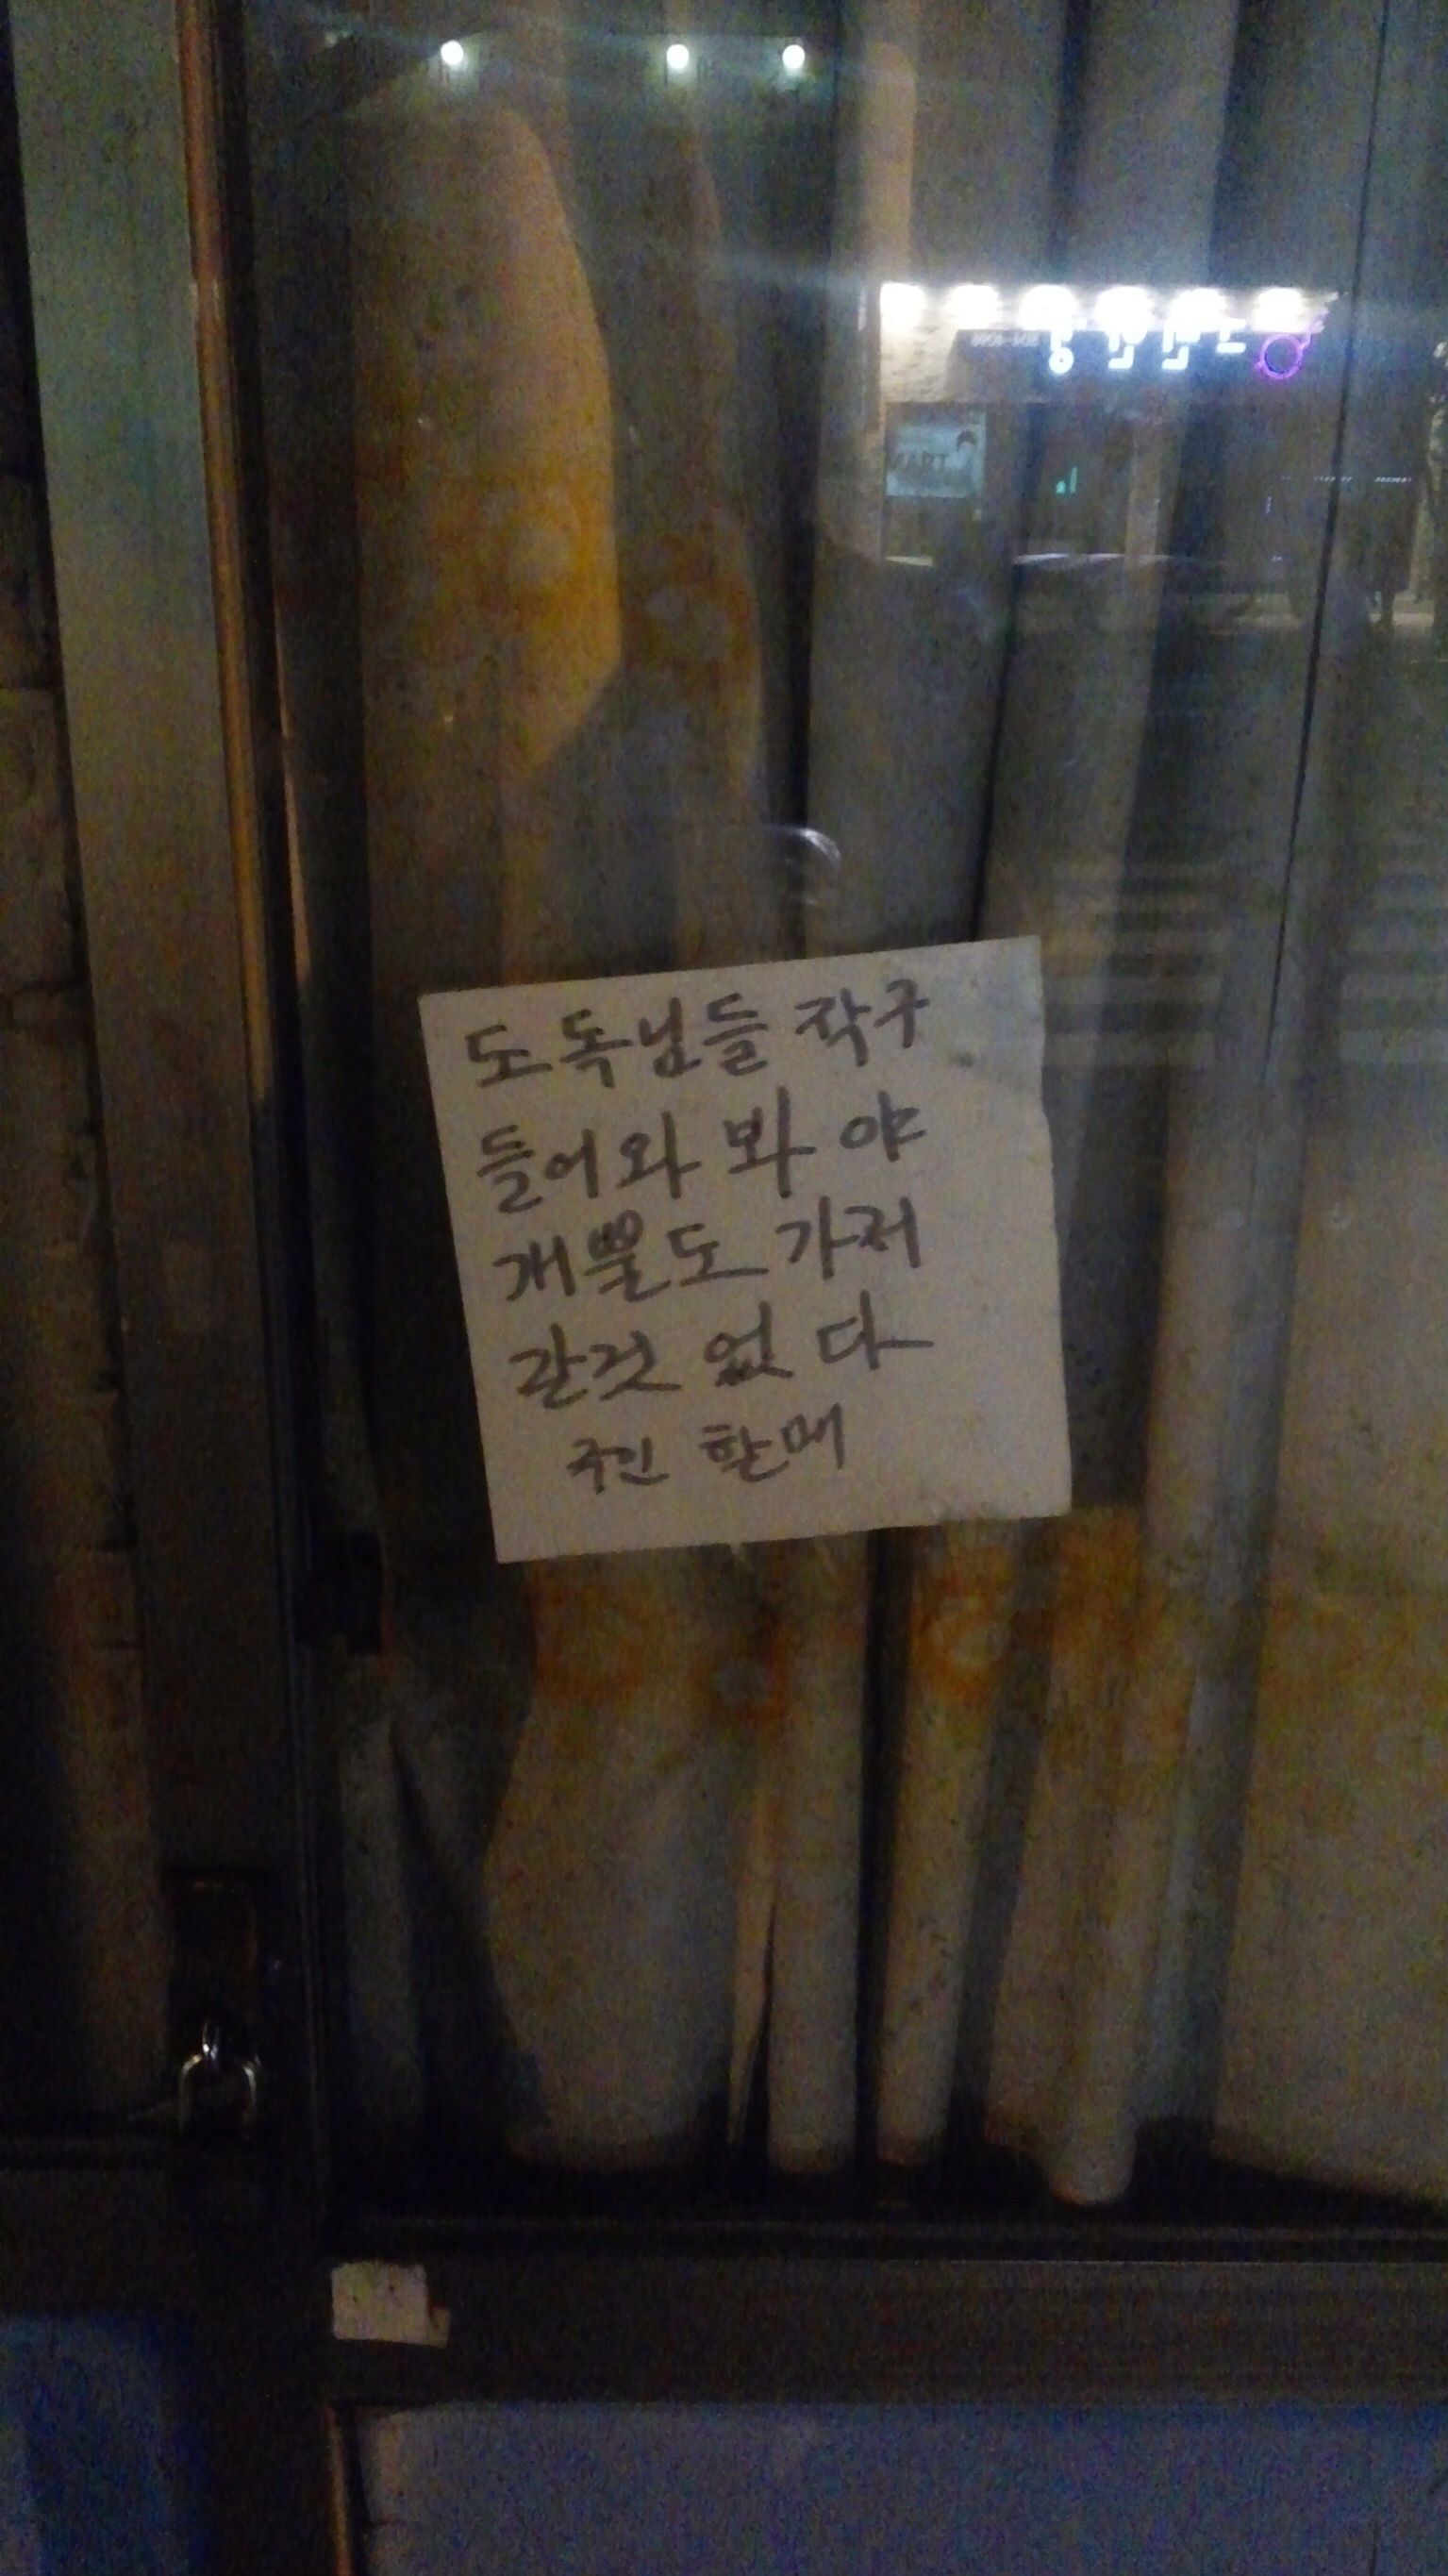 MART
도독님들 작구
들어와 봐 야
개뿔도 가저
갈것 없 다
주인 할매